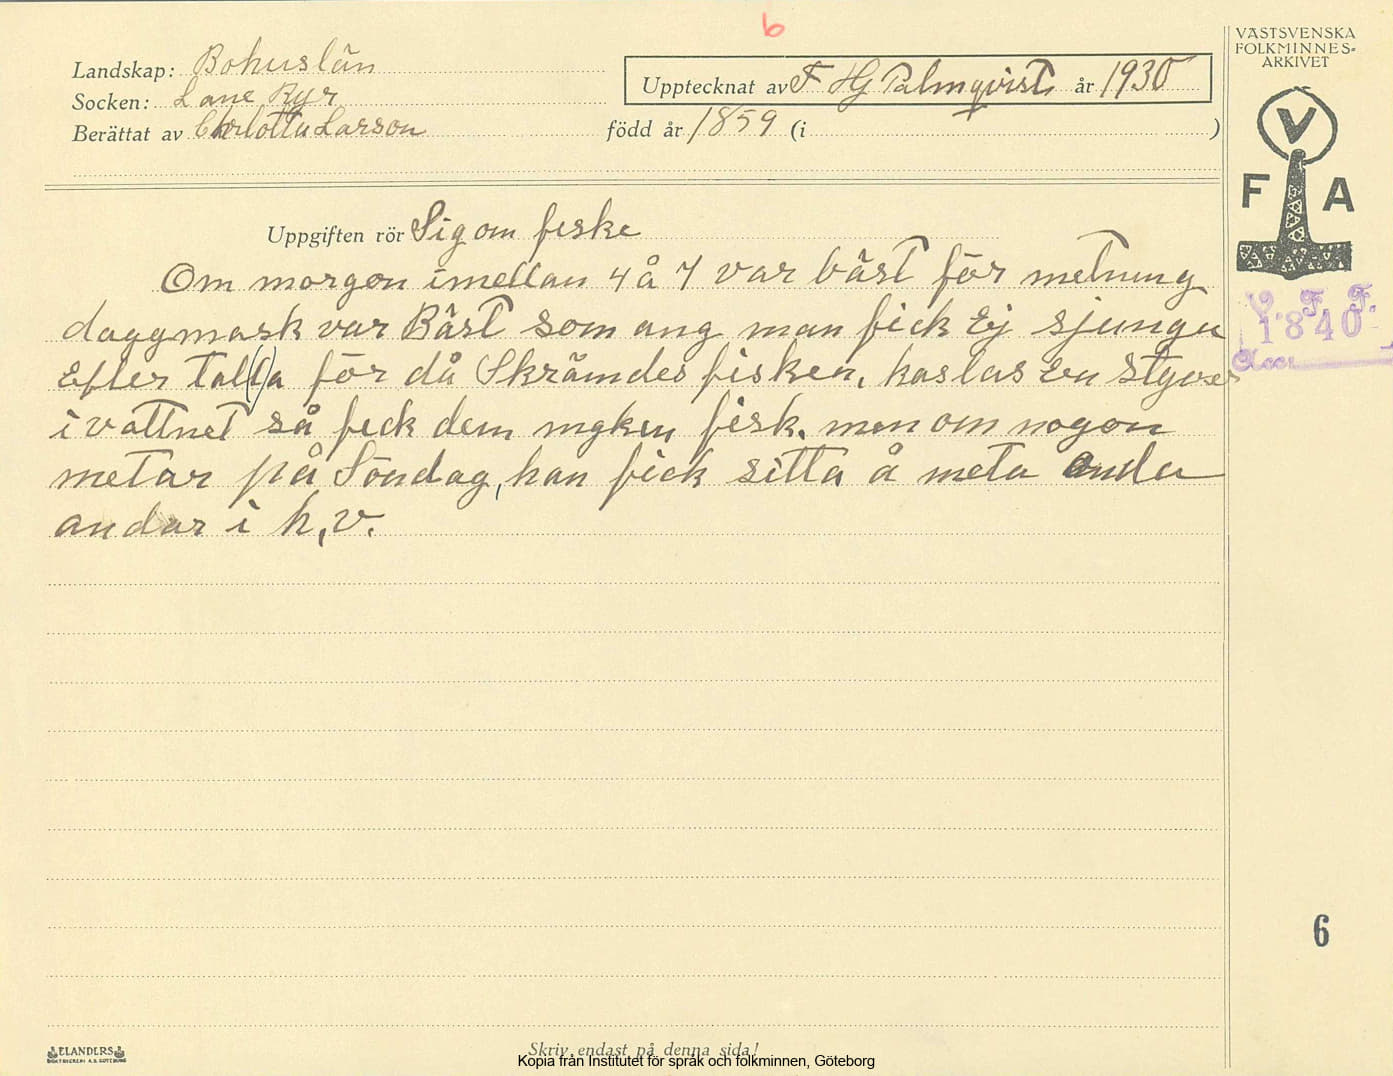 6
VÄSTSVENSKA
FOLKMINNES-
ARKIVET
Landskap: Bohuslän
Socken: Lane Ryr
Upptecknat av F Hj Palmqvist år 1930
Berättat av Charlotta Larson född år 1859 (i )
V
F A
Uppgiften rör Sig om feske
Om morgon imellan 4 å 7 var bäst för metning
V. F. F.
1840
daggmask var Bäst som ang man fick Ej sjunga
Efler tal(l)a för då Skrämdes fisken, kaslas En Styver
i vattnet så feck dem myken fisk. men om nogon
metar på Söndag, han fick sitta å meta
andar i h,v.
6
ELANDERS
BOKTRYCKERI A.B. GÖTEBORG
Skriv endast på denna sida!
Kopia från Institutet för språk och folkminnen, Göteborg